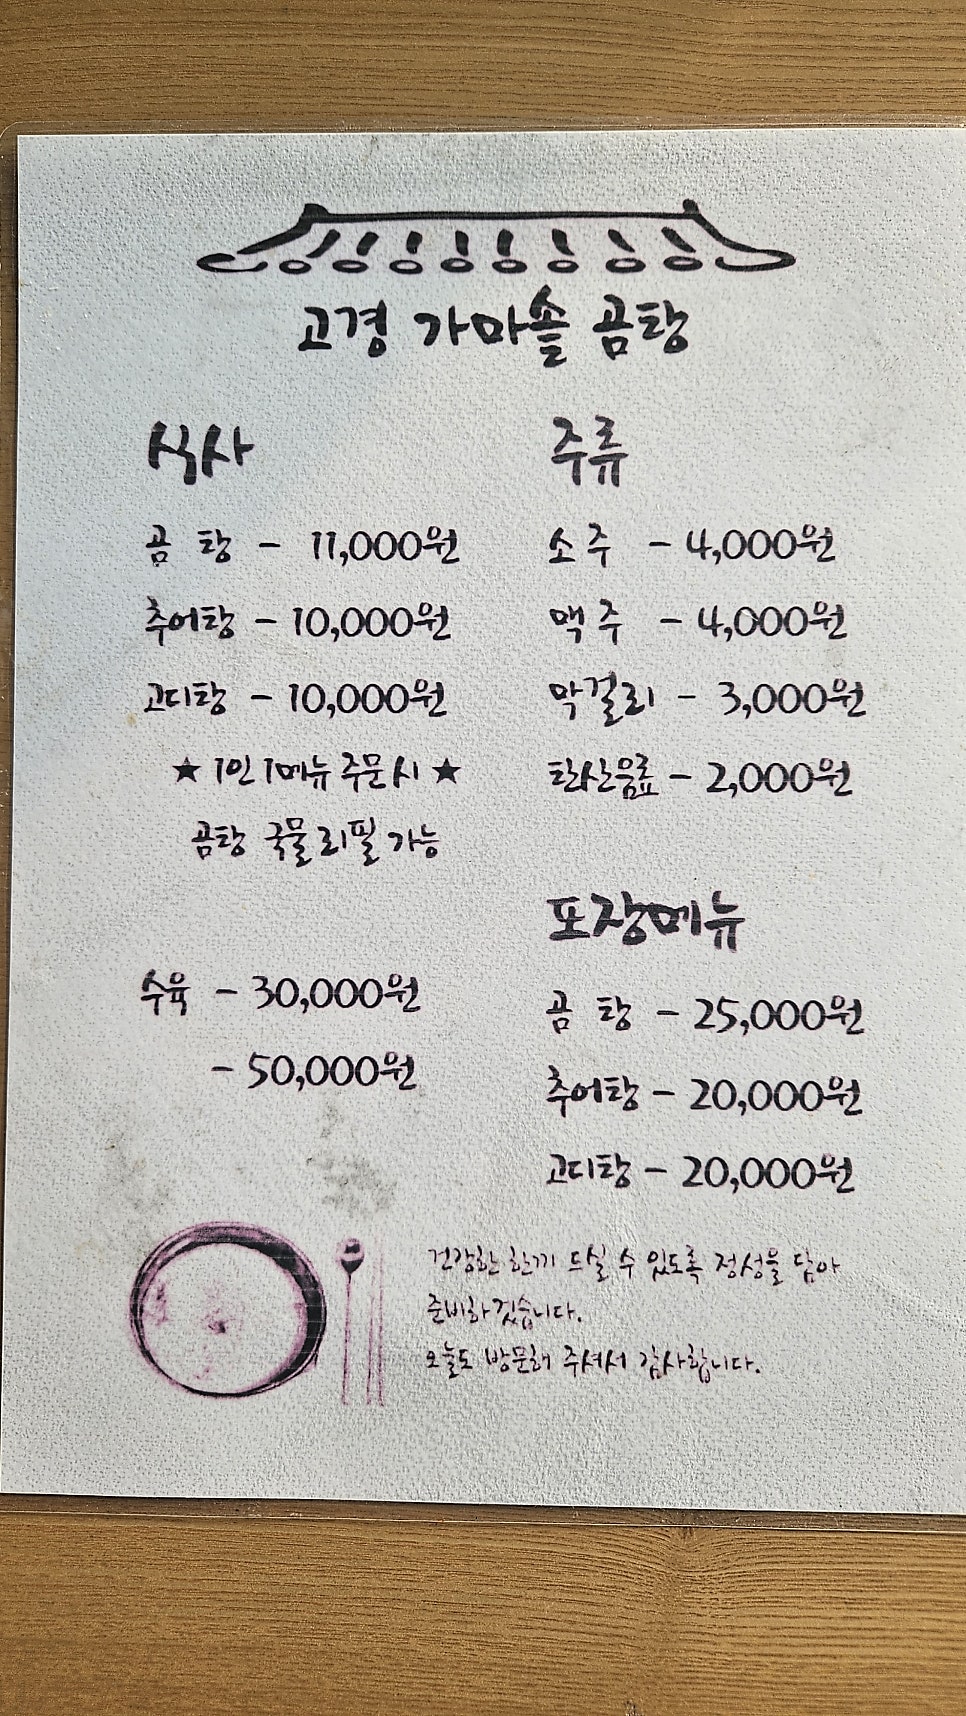 고경 가마솥 곰탕
식사
곰 탕 - 11,000원
추어탕 - 10,000원
고디탕 - 10,000원
★ 1인 1메뉴 주문시 ★
곰탕 국물 리필 가능
수육 - 30,000원
- 50,000원
주류
소 주 - 4,000원
맥 주 - 4,000원
막걸리 - 3,000원
탄산음료 - 2,000원
포장메뉴
곰 탕 - 25,000원
추어탕 - 20,000원
고디탕 - 20,000원
건강한 한끼 드실 수 있도록 정성을 담아
준비하겠습니다.
오늘도 방문해 주셔서 감사합니다.